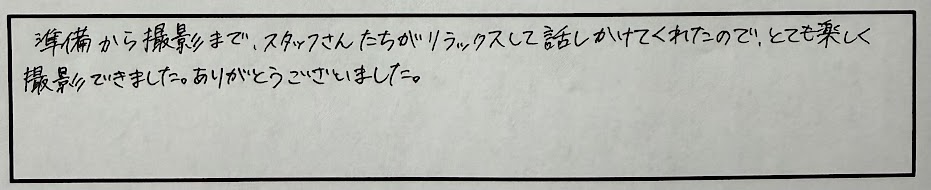 準備から撮影まで、スタッフさんたちがリラックスして話しかけてくれたので、とても楽しく
撮影できました。ありがとうございました。